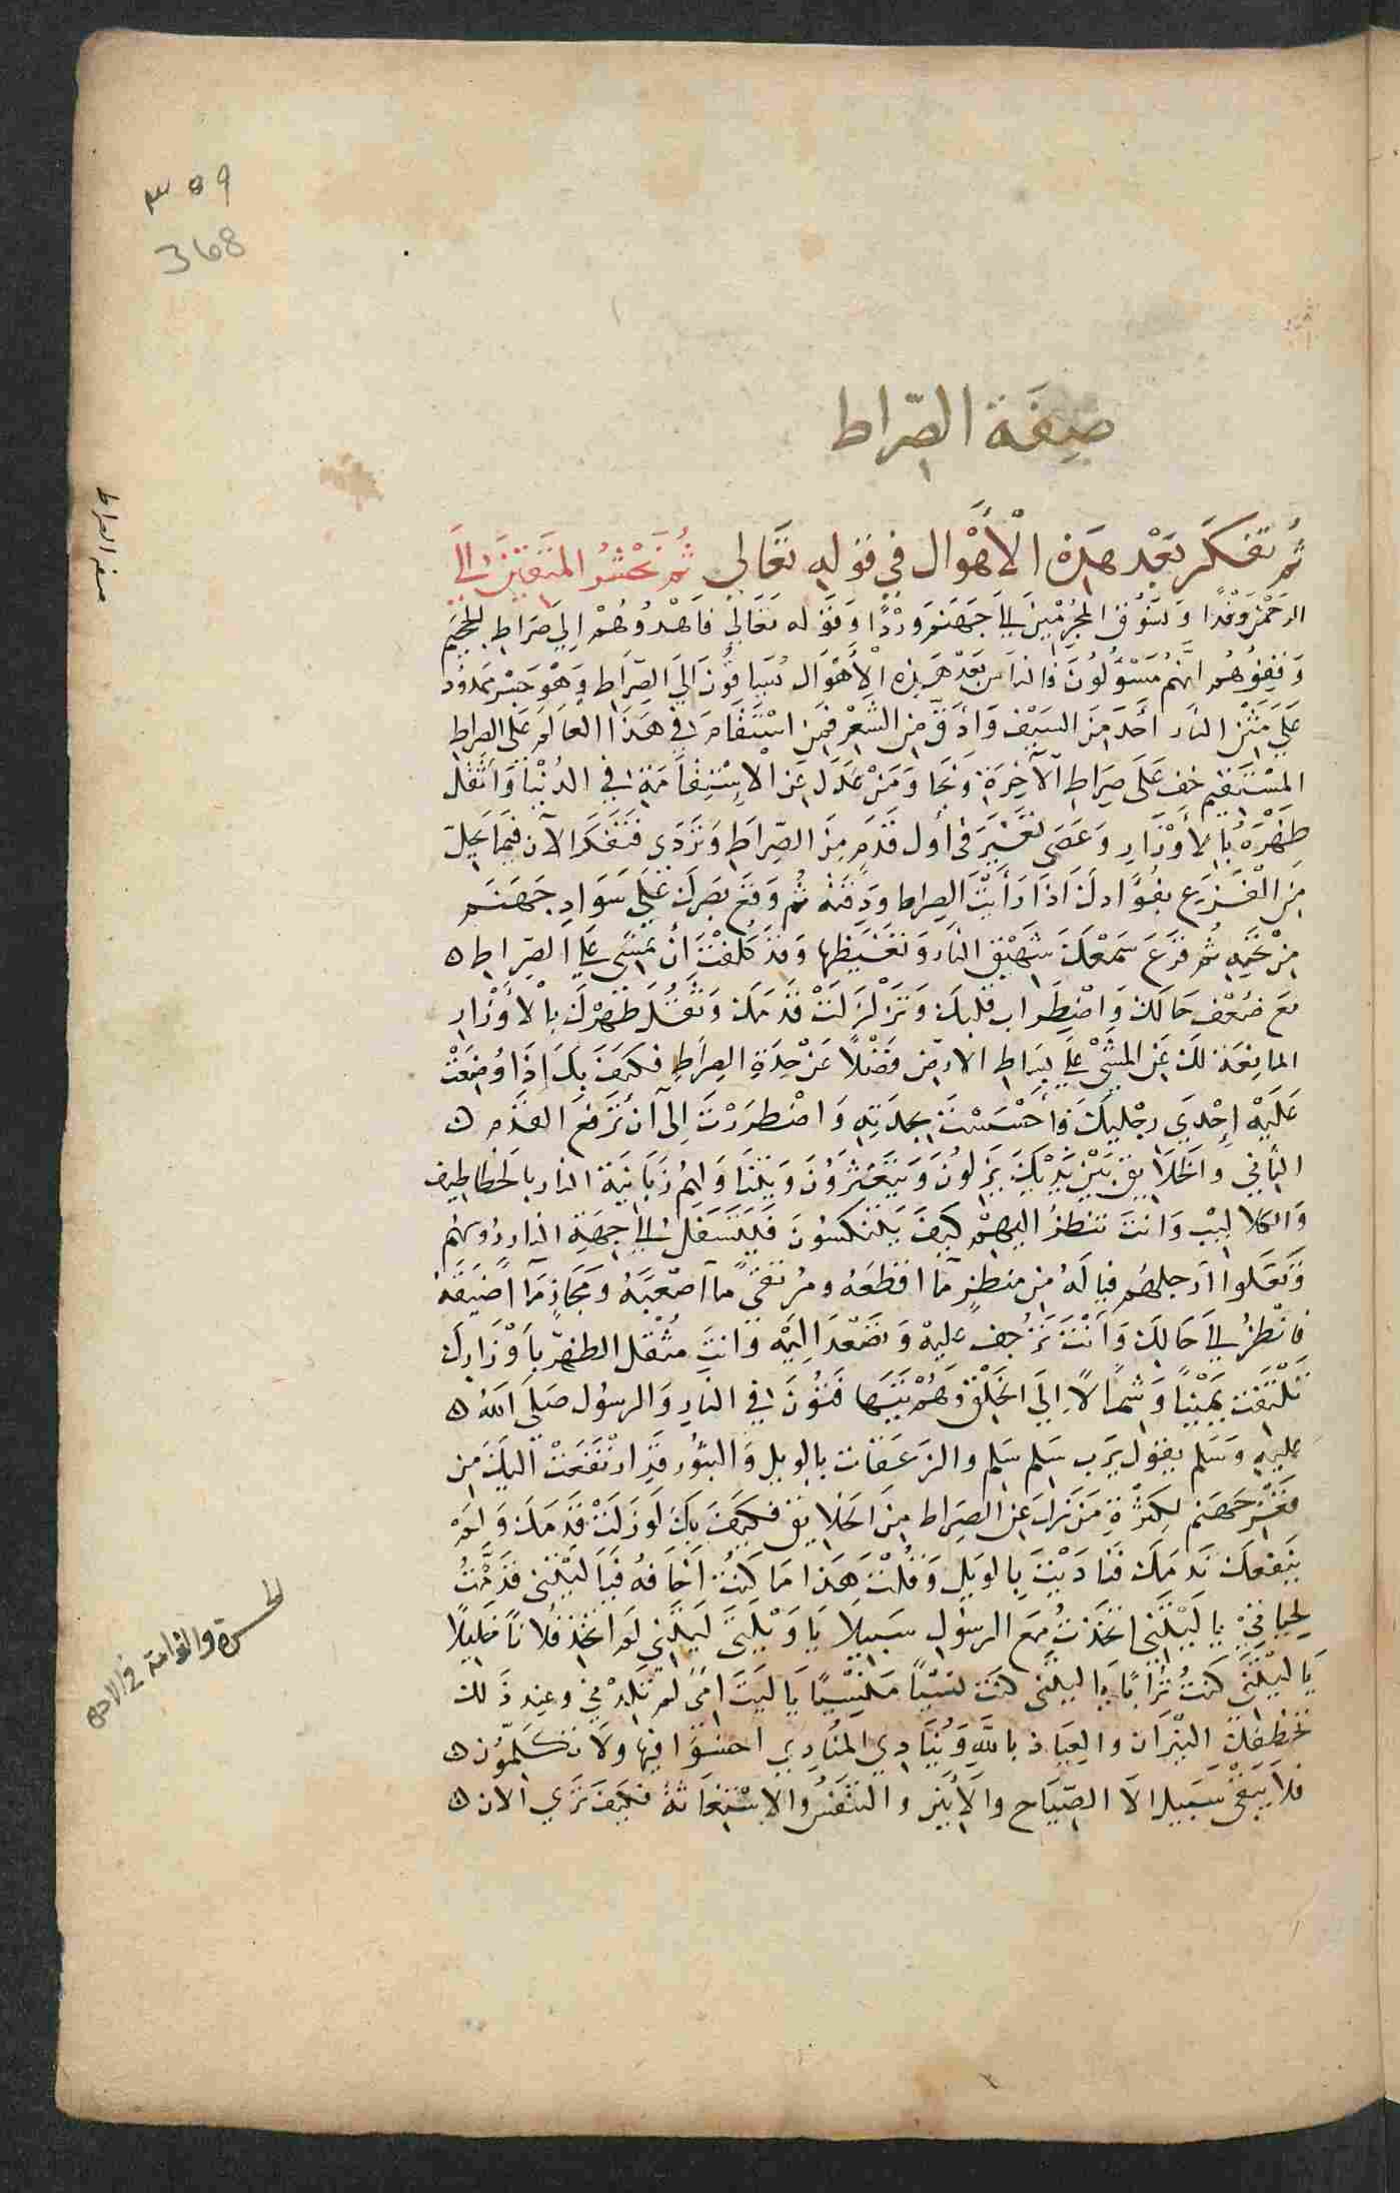 ٣٥٩
368
صِفَة الصِّراط
صفة الصراط
ثُمَّ تَفكَّر بَعْد هَذِهِ الْأَهْوَال فِي قَوْلِهِ تَعَالي ثُمَّ نَحْشُرُ المُتَّقِينَ إِلَى
الرَّحْمَنِ وَفْدًا وَنَسُوقُ المُجْرِمِينَ إِلَى جَهَنَّمَ وِرْدًا وَقَوْله تَعَالَى فَاهْدُوهُمْ إِلَى صِرَاطِ الجَحِيمِ
وَقِفُوهُمْ إِنَّهُمْ مَسْؤُلُونَ فَالنَّاسُ بَعْدَ هَذِهِ الْأَهْوَالِ يُسَاقُونَ إِلَى الصِّرَاطِ وَهُوَ جِسْرٌ مَمْدُودٌ
عَلَى مَتْنِ النَّار أَحَدَّ مِنَ السَّيْفِ وَأَدَقَّ مِنَ الشَّعْرِ فَمَنِ اسْتَقَامَ فِي هَذَا العَالَمِ عَلَى الصِّراطِ
المُسْتَقِيم خف عَلَى صِرَاطِ الآخِرَةِ وَنَجَا وَمَنْ عَدَلَ عَنِ الاِسْتِقَامَةِ فِي الدُّنْيَا وَأَثْقَلَ
ظَهْرَهُ بِالأَوْزَارِ وَعَصَى تَعَثَّرَ فِى أَول قَدَمٍ مِنَ الصِّرَاطِ وَتَرَدَّى فَتَفَكَّر الآن فِيمَا يَحِلّ
مِنَ الْفَزَعِ بِفُؤَادِكَ إِذَا رَأَيْتَ الصِراط وَدِقَّتَهُ ثُمَّ وَقَعَ بَصَرُكَ عَلَى سَوَادِ جَهَنَّمَ
مِنْ تَحْتِهِ ثُمَّ قَرَعَ سَمْعَكَ شَهِيْقُ النَّار وَتَغَيُّظُها وَقَدْ كُلِّفْتَ أَنْ تَمْشِي عَلَى الصِّرَاطِ
مَعَ ضُعْفِ حَالِكَ وَاضْطِرَاب قَلبِكَ وَتَزَلْزُل قَدَمِكَ وَثِقَل ظَهْرِكَ بِالأَوْزَارِ
المانِعَة لَكَ عَنِ المَشْي عَلَى بِسَاطِ الارض فَضْلًا عَنْ حِدَّةِ الصِرَاطِ فَكَيْفَ بِكَ إِذَا وَضَعْتَ
عَلَيْهِ إِحْدَى رِجْلَيْكَ فَأَحْسَسْتَ بِحِدَّتِهِ وَاضْطَرَرْتَ إِلَى أَنْ تَرْفَع القَدَم
الثَّانِي وَالخَلَايِق بَيْنَ يَدَيْكَ يَزِلُّونَ وَيَتَعَثَّرُونَ وَيَتَنَاوَلهُم زَبَانِيَة النار بِالخَطَاطِيف
وَالكلالِيْبِ وَانتَ تَنْظُرُ إِلَيهِمْ كَيْفَ يَتَنَكَّسُونَ فَيَتَسَفَّلُ إِلَى جِهَةِ النار رُؤسهُم
وَتَعلوا أرجلهُم فيا لَهُ مِن مَنظرٍ مَّا أفظَعَهُ ومُرتَقَى مَّا أَصْعَبَهُ وَمَجَازٍ مَّا أَضْيَقَهُ
فَانْظُرْ إِلَى حَالِكَ وَأَنْتَ تَزْحِف عَليْهِ وَتَصْعَد إِلَيْهِ وَأَنتَ مُثْقَل الظَّهْرِ بِأَوْزَارِكَ
تَلْتَفِت يَمِيْنًا وَشِمَالًا إِلَى الخَلْقِ وَهُمْ يَتَهَافَتُونَ فِي النَّارِ وَالرسُول صَلَّى اللَّهُ
عليهِ وَسَلم يقول يَرَب سَلِم سَلِم والزَعَقَات بالويل وَالثبُور قَدِ ارْتَفَعَتْ إِليكَ مِن
قَعْرِ جَهَنم لِكَثْرَةِ مَنْ زَلَّ عَنِ الصِرَاط مِنَ الخَلايِق فَكَيْفَ بِكَ لَو زَلَّتْ قَدَمكَ وَلَمْ
يَنفعكَ نَدَمكَ فَنَادَيْتَ بِالوَيلِ وَقُلْتَ هَذا مَا كُنْتُ أَخَافهُ فَيَا لَيْتَنِي قَدَّمْتُ
لِحَيَاتِيْ يا لَيْتَنِي اتَّخَذتُ مَع الرسُول سَبِيلا يَا وَيْلَتَى لَيْتَنِي لَمْ اتَّخِذْ فُلَانًا خَلِيلًا
يَا لَيْتَنِي كُنْتُ تُرَابًا يَا لَيْتَنِي كُنتُ نَسْيًا مَنْسِيًا يَا لَيْتَ أُمِّي لَمْ تَلِدْنِي وعِند ذَلك
تخطفكَ النِّيْرَان وَالعِيَاذ بِاللَّهِ وَيُنَادِي المُنَادِي اخسَؤا فِيهَا وَلَا تُكَلِّمُون
فَلَا يَبْقَى سَبِيلا الَّا الصِّيَاح وَالأَنِين وَالتَّنَفُّس وَالاِسْتِغَاثَة فَكَيْفَ تَرَي الان
الحسرة والندامة في الاخرة